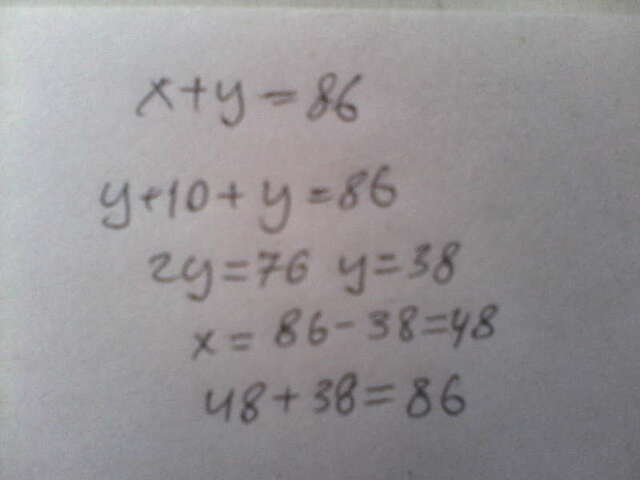 x+y=86
y+10+y=86
2y=76 y=38
x=86-38=48
48+38=86